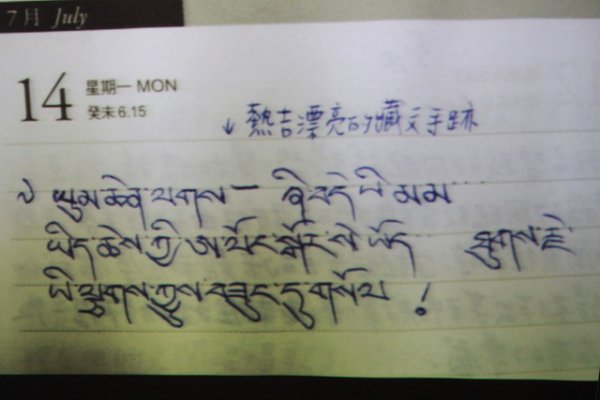 7月 July
14 星期一 MON
癸未6.15
↓熱吉漂亮的藏文手跡
ཡུམ་ཆེན་ལགས་— ཞི་བདེ་ཡི་
ཡིད་ཆེས་ཀྱི་ ཡོད་ ཐུགས་རྗེ་
ཡི་ལྕགས་ཀྱུས་བཟུང་དུ་གསོལ !